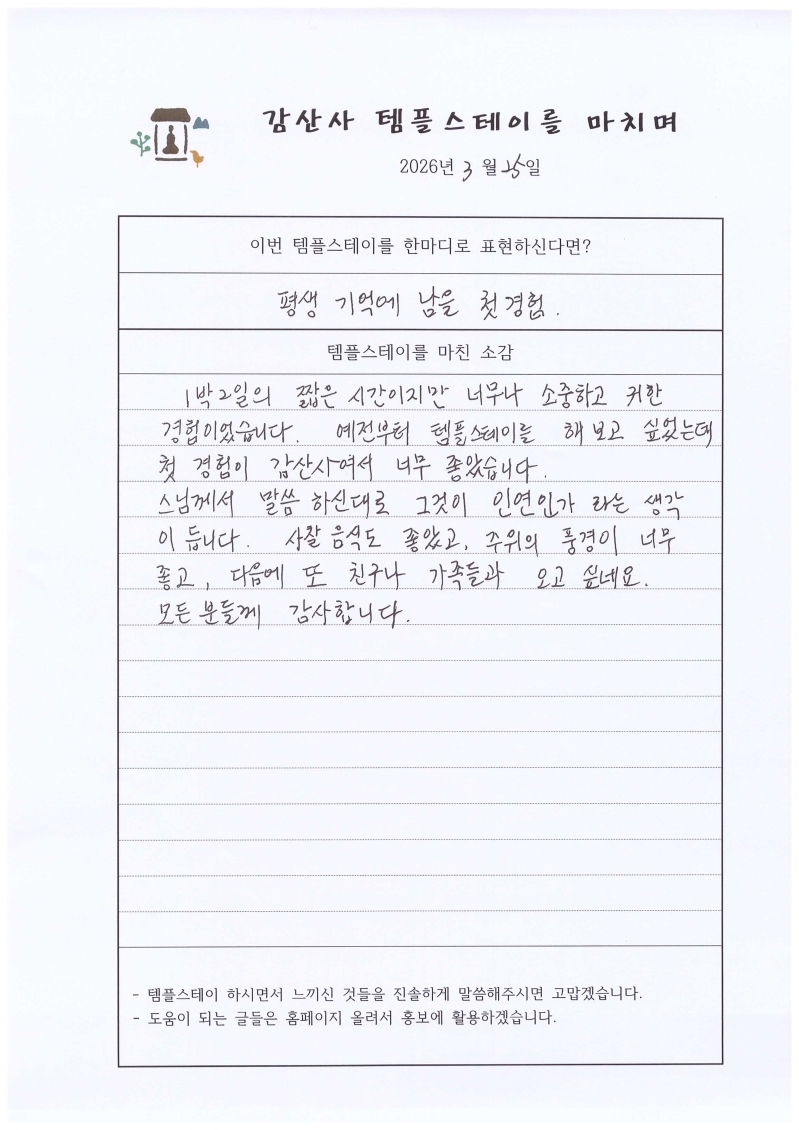 감산사 템플스테이를 마치며
2026년 3 월 25일
이번 템플스테이를 한마디로 표현하신다면?
평생 기억에 남을 첫 경험.
템플스테이를 마친 소감
1박2일의 짧은 시간이지만 너무나 소중하고 귀한
경험이었습니다. 예전부터 템플스테이를 해 보고 싶었는데
첫 경험이 감산사여서 너무 좋았습니다.
스님께서 말씀 하신대로 그것이 인연인가 라는 생각
이 듭니다. 사찰음식도 좋았고, 주위의 풍경이 너무
좋고, 다음에 또 친구나 가족들과 오고 싶네요.
모든 분들께 감사합니다.
- 템플스테이 하시면서 느끼신 것들을 진솔하게 말씀해주시면 고맙겠습니다.
- 도움이 되는 글들은 홈페이지 올려서 홍보에 활용하겠습니다.